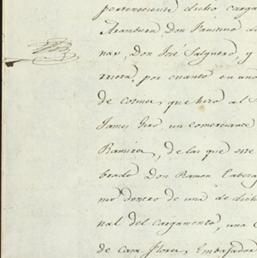 perteneciente dicho carga
Aramburu, Don Faustino de
nar, Don José Salguero, y
por cuanto en uno
de comer, que hizo al
James Giro un comerciante
Ramirez, de las que este
brado Don Ramon Cabeza
mo dinero de una de dich
nal del cargamento, una
de casa Flores, Embajador